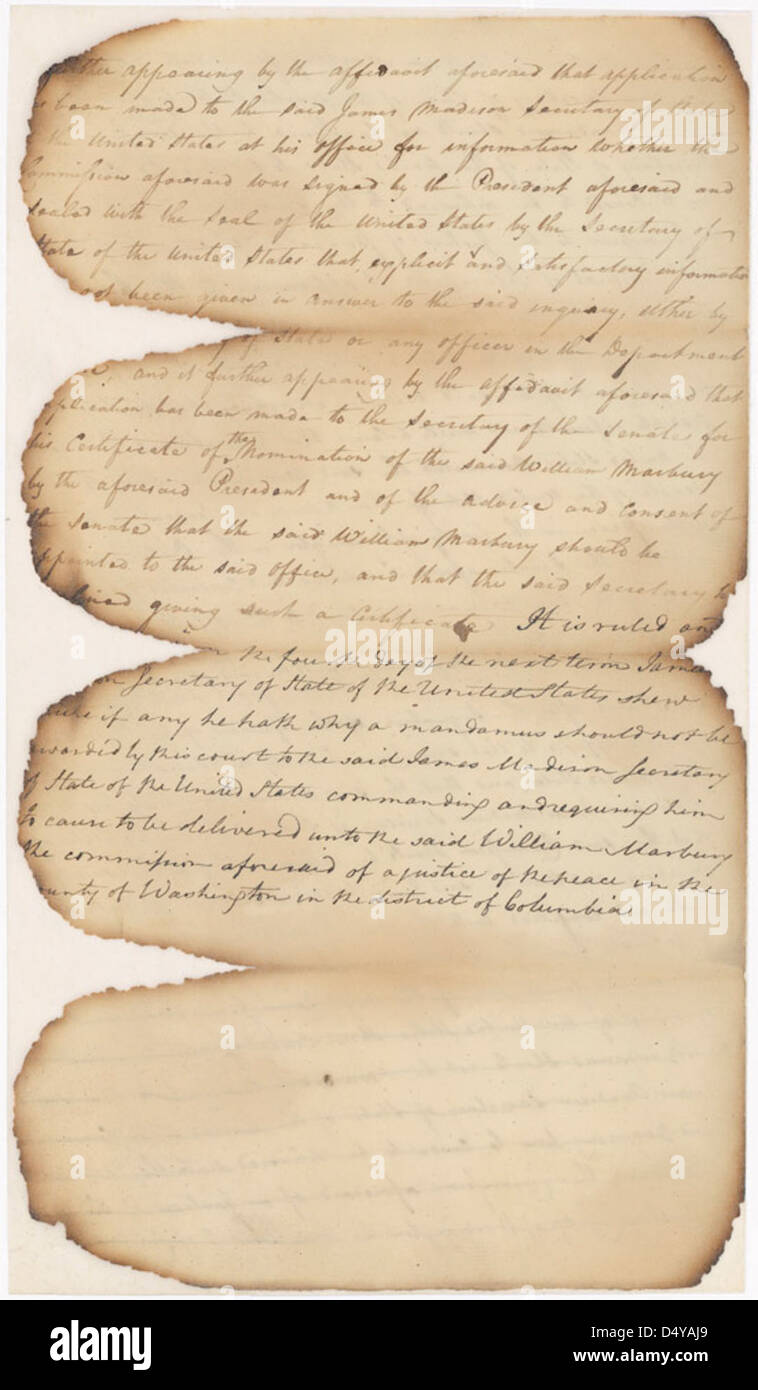 further appearing by the affidavit aforesaid that application
been made to the said James Madison Secretary of State
the United States at his office for information whether the
Commission aforesaid was signed by the President aforesaid and
sealed with the seal of the United States by the Secretary of
State of the United States that explicit and satisfactory information
not been given in answer to the said inquiry, either by
of State or any officer in the Department
and it further appearing by the affidavit aforesaid that
application has been made to the Secretary of the Senate for
his Certificate of the Nomination of the said William Marbury
by the aforesaid President and of the advice and consent of
the Senate that the said William Marbury should be
appointed to the said office, and that the said Secretary
giving such a certificate It is ruled
the fourth day of the next term James
Secretary of State of the United States shew
cause if any he hath why a mandamus should not be
awarded by this court to the said James Madison Secretary
of State of the United States commanding and requiring him
to cause to be delivered unto the said William Marbury
the commission aforesaid of a justice of the peace in the
county of Washington in the district of Columbia
alamy
alamy
alamy
alamy
Image ID: D4YAJ9
www.alamy.com